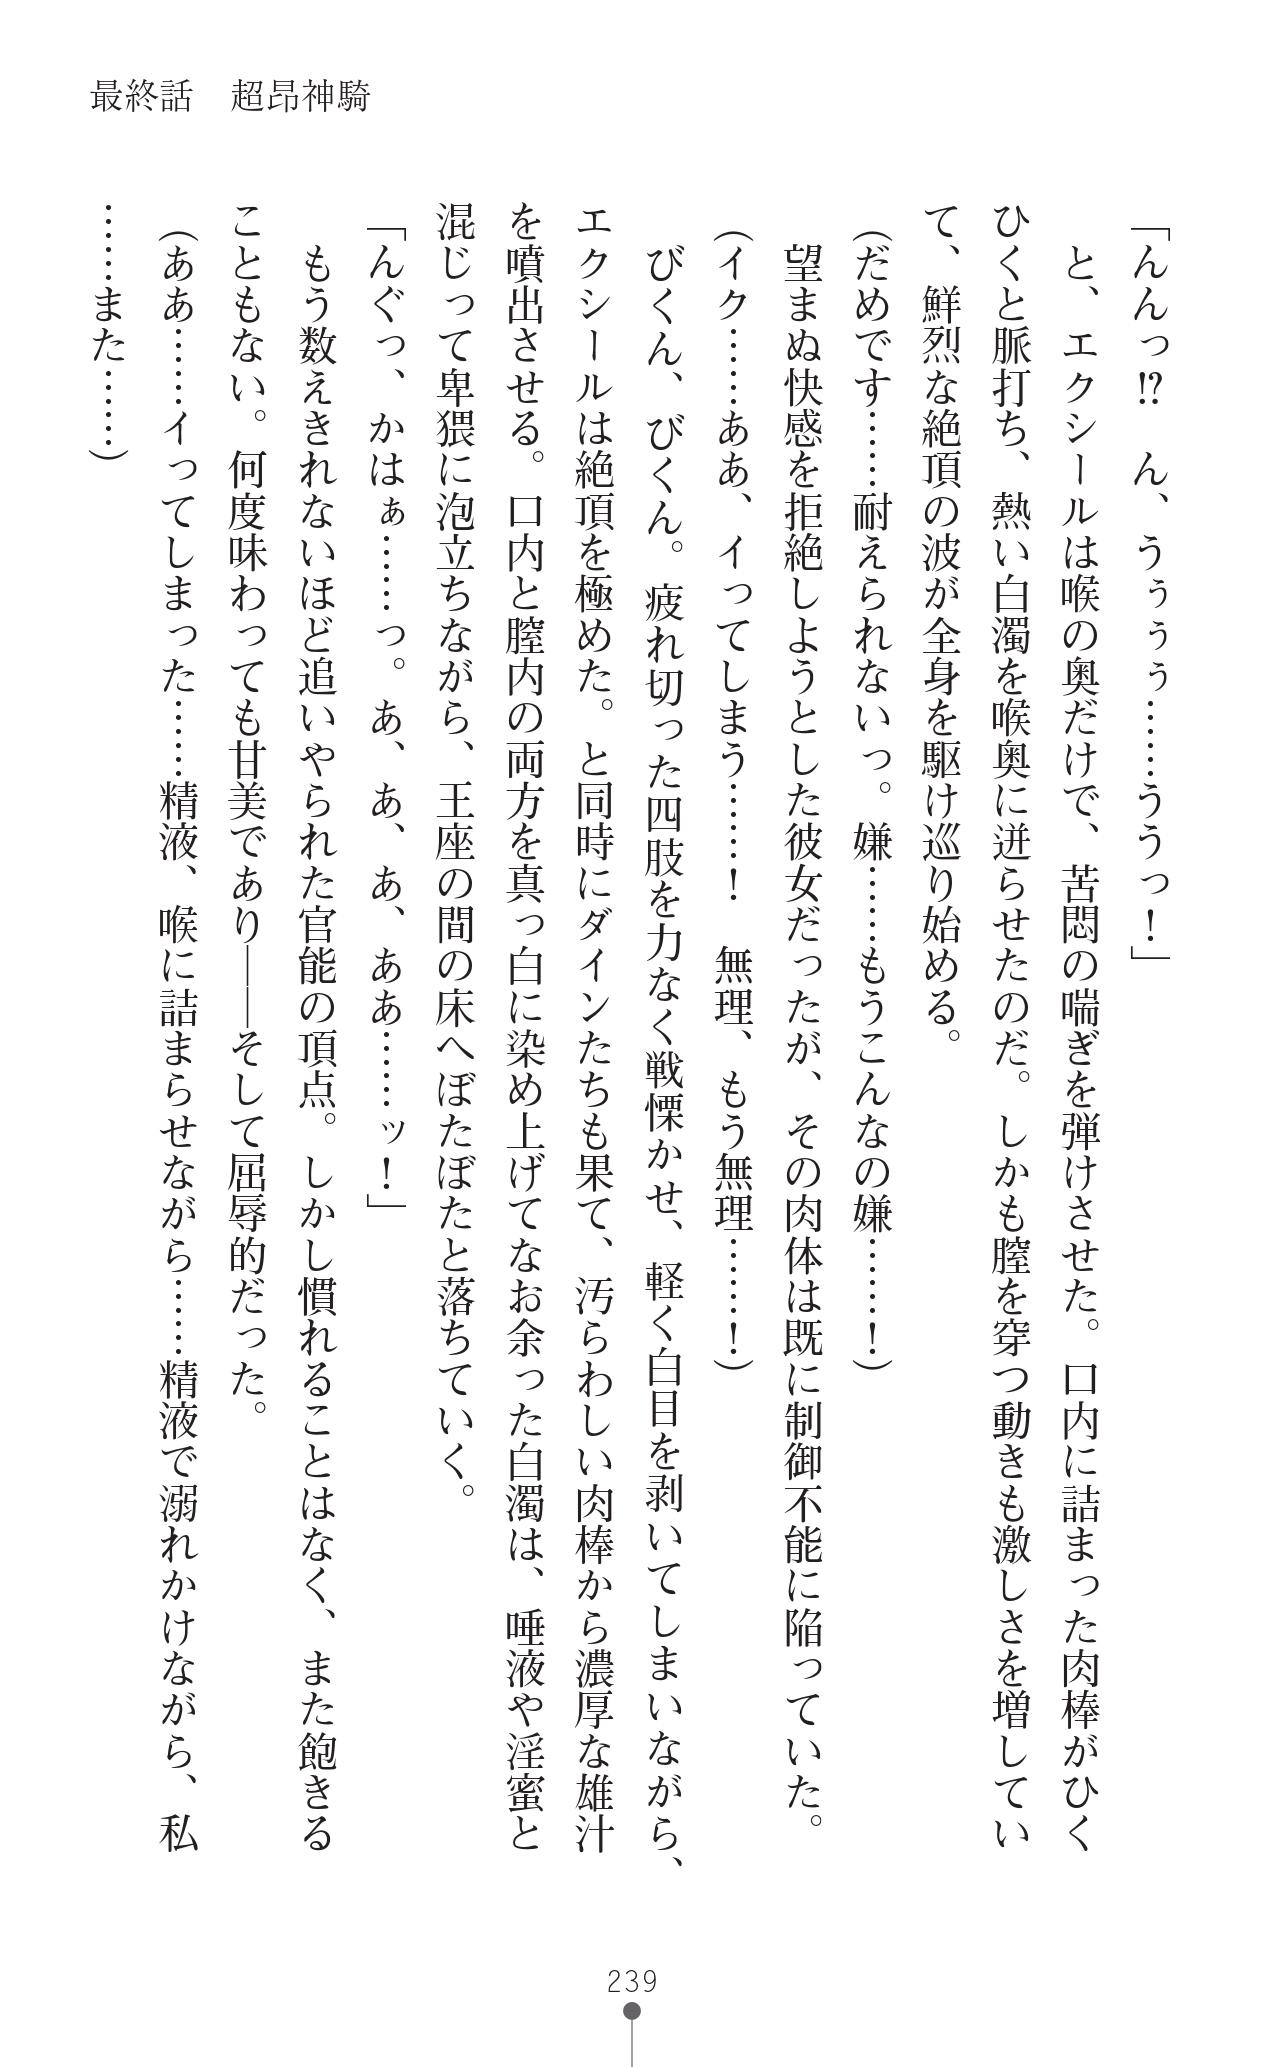 最終話　超昂神騎
「んんっ!?　ん、うぅぅぅ………ううっ！」
　と、エクシールは喉の奥だけで、苦悶の喘ぎを弾けさせた。口内に詰まった肉棒がひく
ひくと脈打ち、熱い白濁を喉奥に迸らせたのだ。しかも膣を穿つ動きも激しさを増してい
て、鮮烈な絶頂の波が全身を駆け巡り始める。
（だめです……耐えられないっ。嫌……もうこんなの嫌……！）
　望まぬ快感を拒絶しようとした彼女だったが、その肉体は既に制御不能に陥っていた。
（イク……ああ、イってしまう……！　無理、もう無理……！）
　びくん、びくん。疲れ切った四肢を力なく戦慄かせ、軽く白目を剥いてしまいながら、
エクシールは絶頂を極めた。と同時にダインたちも果て、汚らわしい肉棒から濃厚な雄汁
を噴出させる。口内と膣内の両方を真っ白に染め上げてなお余った白濁は、唾液や淫蜜と
混じって卑猥に泡立ちながら、王座の間の床へぼたぼたと落ちていく。
「んぐっ、かはぁ……っ。あ、あ、あ、ああ……ッ！」
　もう数えきれないほど追いやられた官能の頂点。しかし慣れることはなく、また飽きる
こともない。何度味わっても甘美であり――そして屈辱的だった。
（ああ……イってしまった……精液、喉に詰まらせながら……精液で溺れかけながら、私
……また……）
239